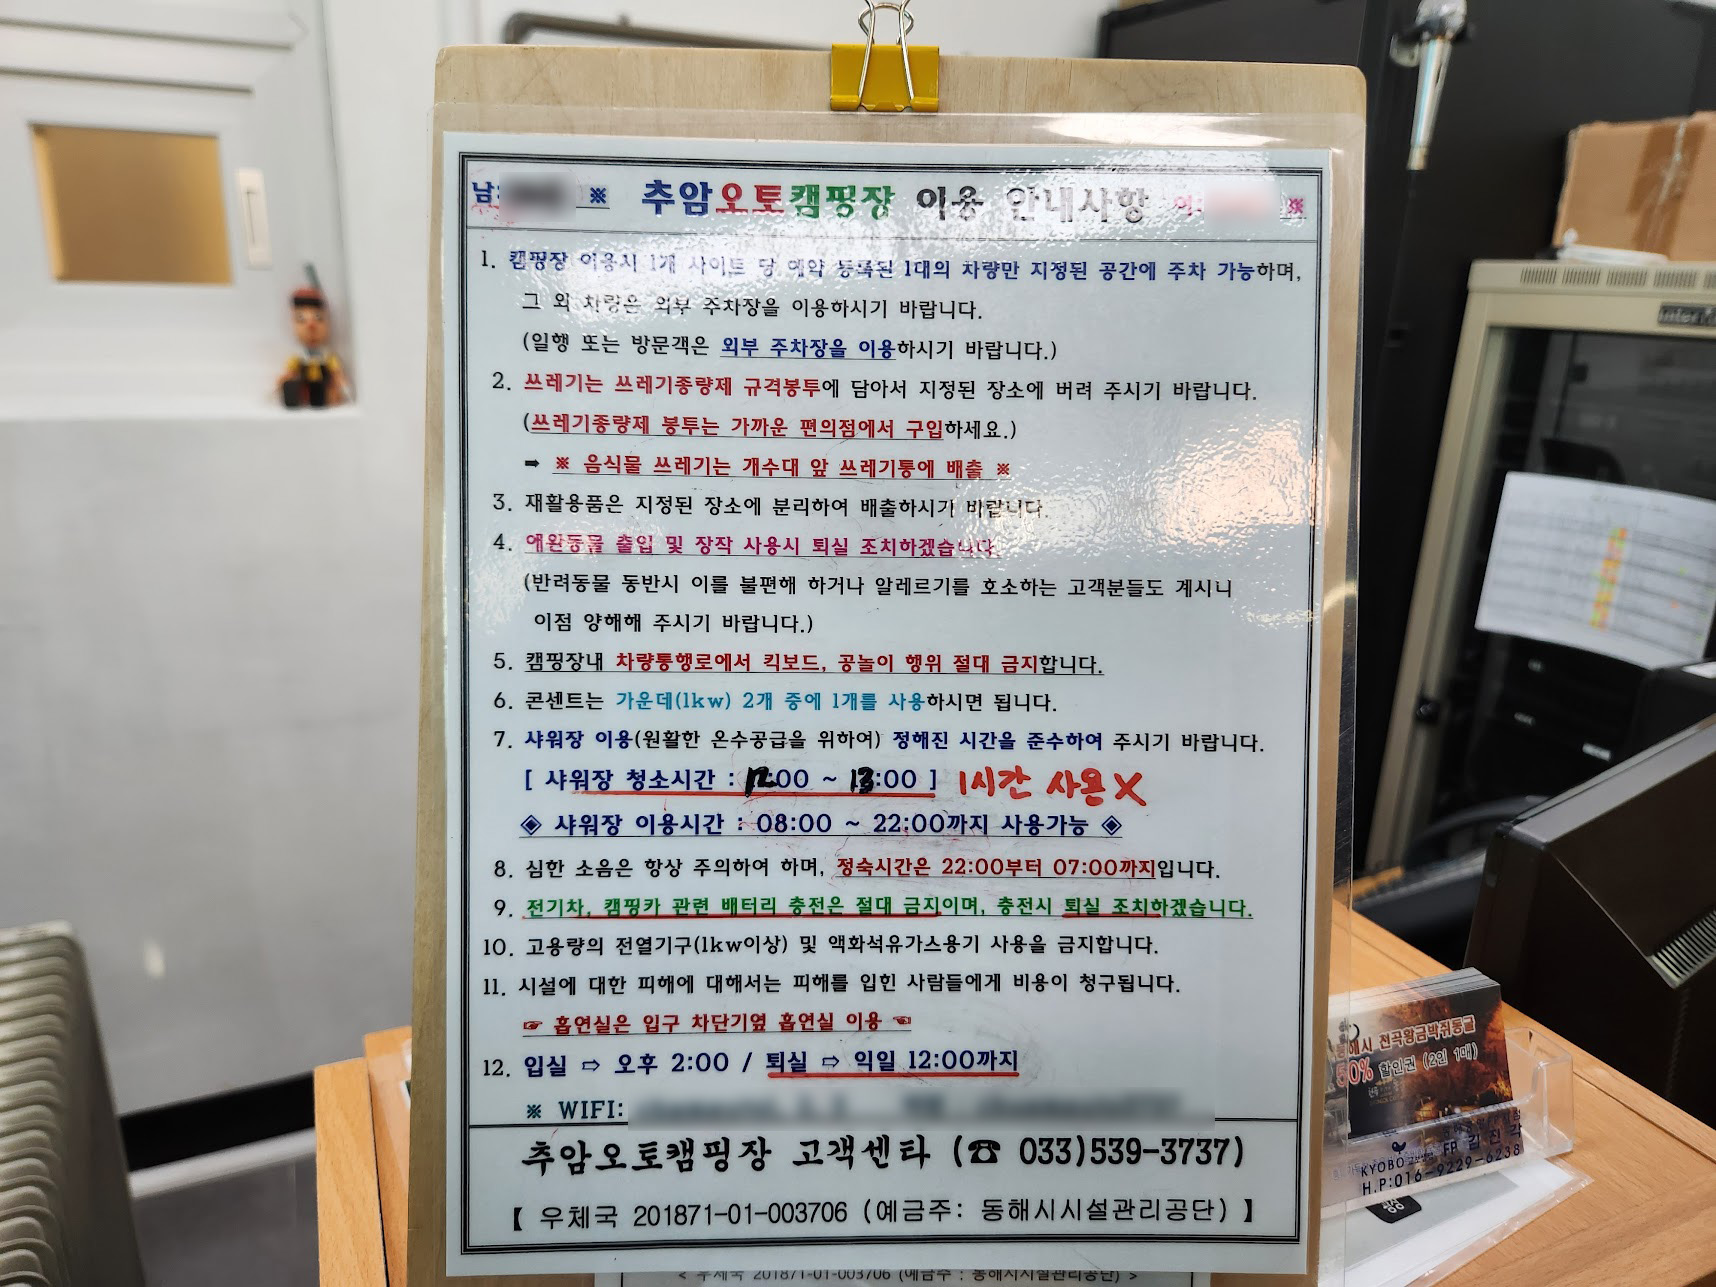 남: ※ 추암오토캠핑장 이용 안내사항 여: ※
1. 캠핑장 이용시 1개 사이트 당 예약 등록된 1대의 차량만 지정된 공간에 주차 가능하며,
그 외 차량은 외부 주차장을 이용하시기 바랍니다.
(일행 또는 방문객은 외부 주차장을 이용하시기 바랍니다.)
2. 쓰레기는 쓰레기종량제 규격봉투에 담아서 지정된 장소에 버려 주시기 바랍니다.
(쓰레기종량제 봉투는 가까운 편의점에서 구입하세요.)
➡ ※ 음식물 쓰레기는 개수대 앞 쓰레기통에 배출 ※
3. 재활용품은 지정된 장소에 분리하여 배출하시기 바랍니다.
4. 애완동물 출입 및 장작 사용시 퇴실 조치하겠습니다.
(반려동물 동반시 이를 불편해 하거나 알레르기를 호소하는 고객분들도 계시니
이점 양해해 주시기 바랍니다.)
5. 캠핑장내 차량통행로에서 킥보드, 공놀이 행위 절대 금지합니다.
6. 콘센트는 가운데(1kw) 2개 중에 1개를 사용하시면 됩니다.
7. 샤워장 이용(원활한 온수공급을 위하여) 정해진 시간을 준수하여 주시기 바랍니다.
[ 샤워장 청소시간 : 12:00 ~ 13:00 ] 1시간 사용 X
◈ 샤워장 이용시간 : 08:00 ~ 22:00까지 사용가능 ◈
8. 심한 소음은 항상 주의하여 하며, 정숙시간은 22:00부터 07:00까지입니다.
9. 전기차, 캠핑카 관련 배터리 충전은 절대 금지이며, 충전시 퇴실 조치하겠습니다.
10. 고용량의 전열기구(1kw이상) 및 액화석유가스용기 사용을 금지합니다.
11. 시설에 대한 피해에 대해서는 피해를 입힌 사람들에게 비용이 청구됩니다.
☞ 흡연실은 입구 차단기옆 흡연실 이용 ☜
12. 입실 ⇨ 오후 2:00 / 퇴실 ⇨ 익일 12:00까지
※ WIFI:
추암오토캠핑장 고객센타 (☎ 033)539-3737)
【 우체국 201871-01-003706 (예금주: 동해시시설관리공단) 】
< 우체국 201871-01-003706 (예금주 : 동해시시설관리공단) >
동해시 천곡황금박쥐동굴
50% 할인권 (2인 1매)
KYOBO FP 김진각
H.P:016-9229-6238